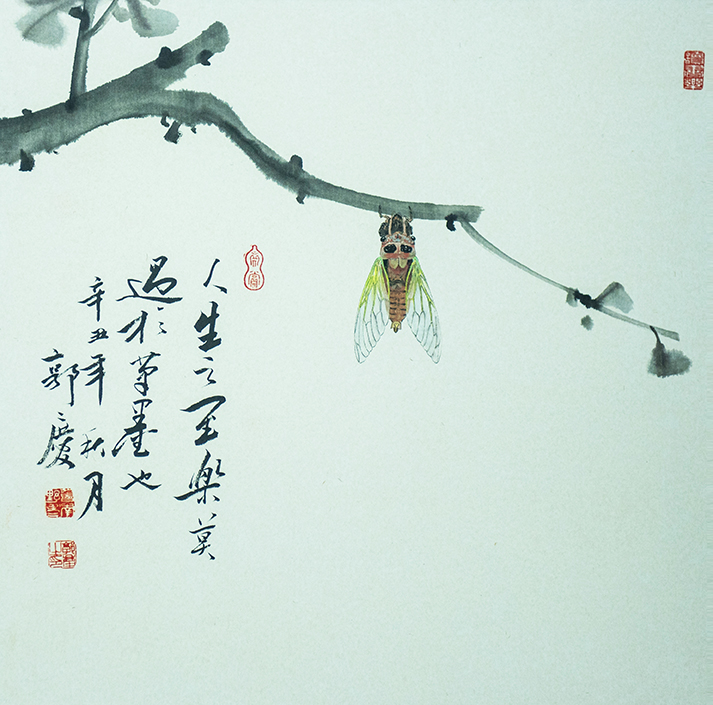 人生之至樂莫
過於筆墨也
辛丑年秋月
郭慶